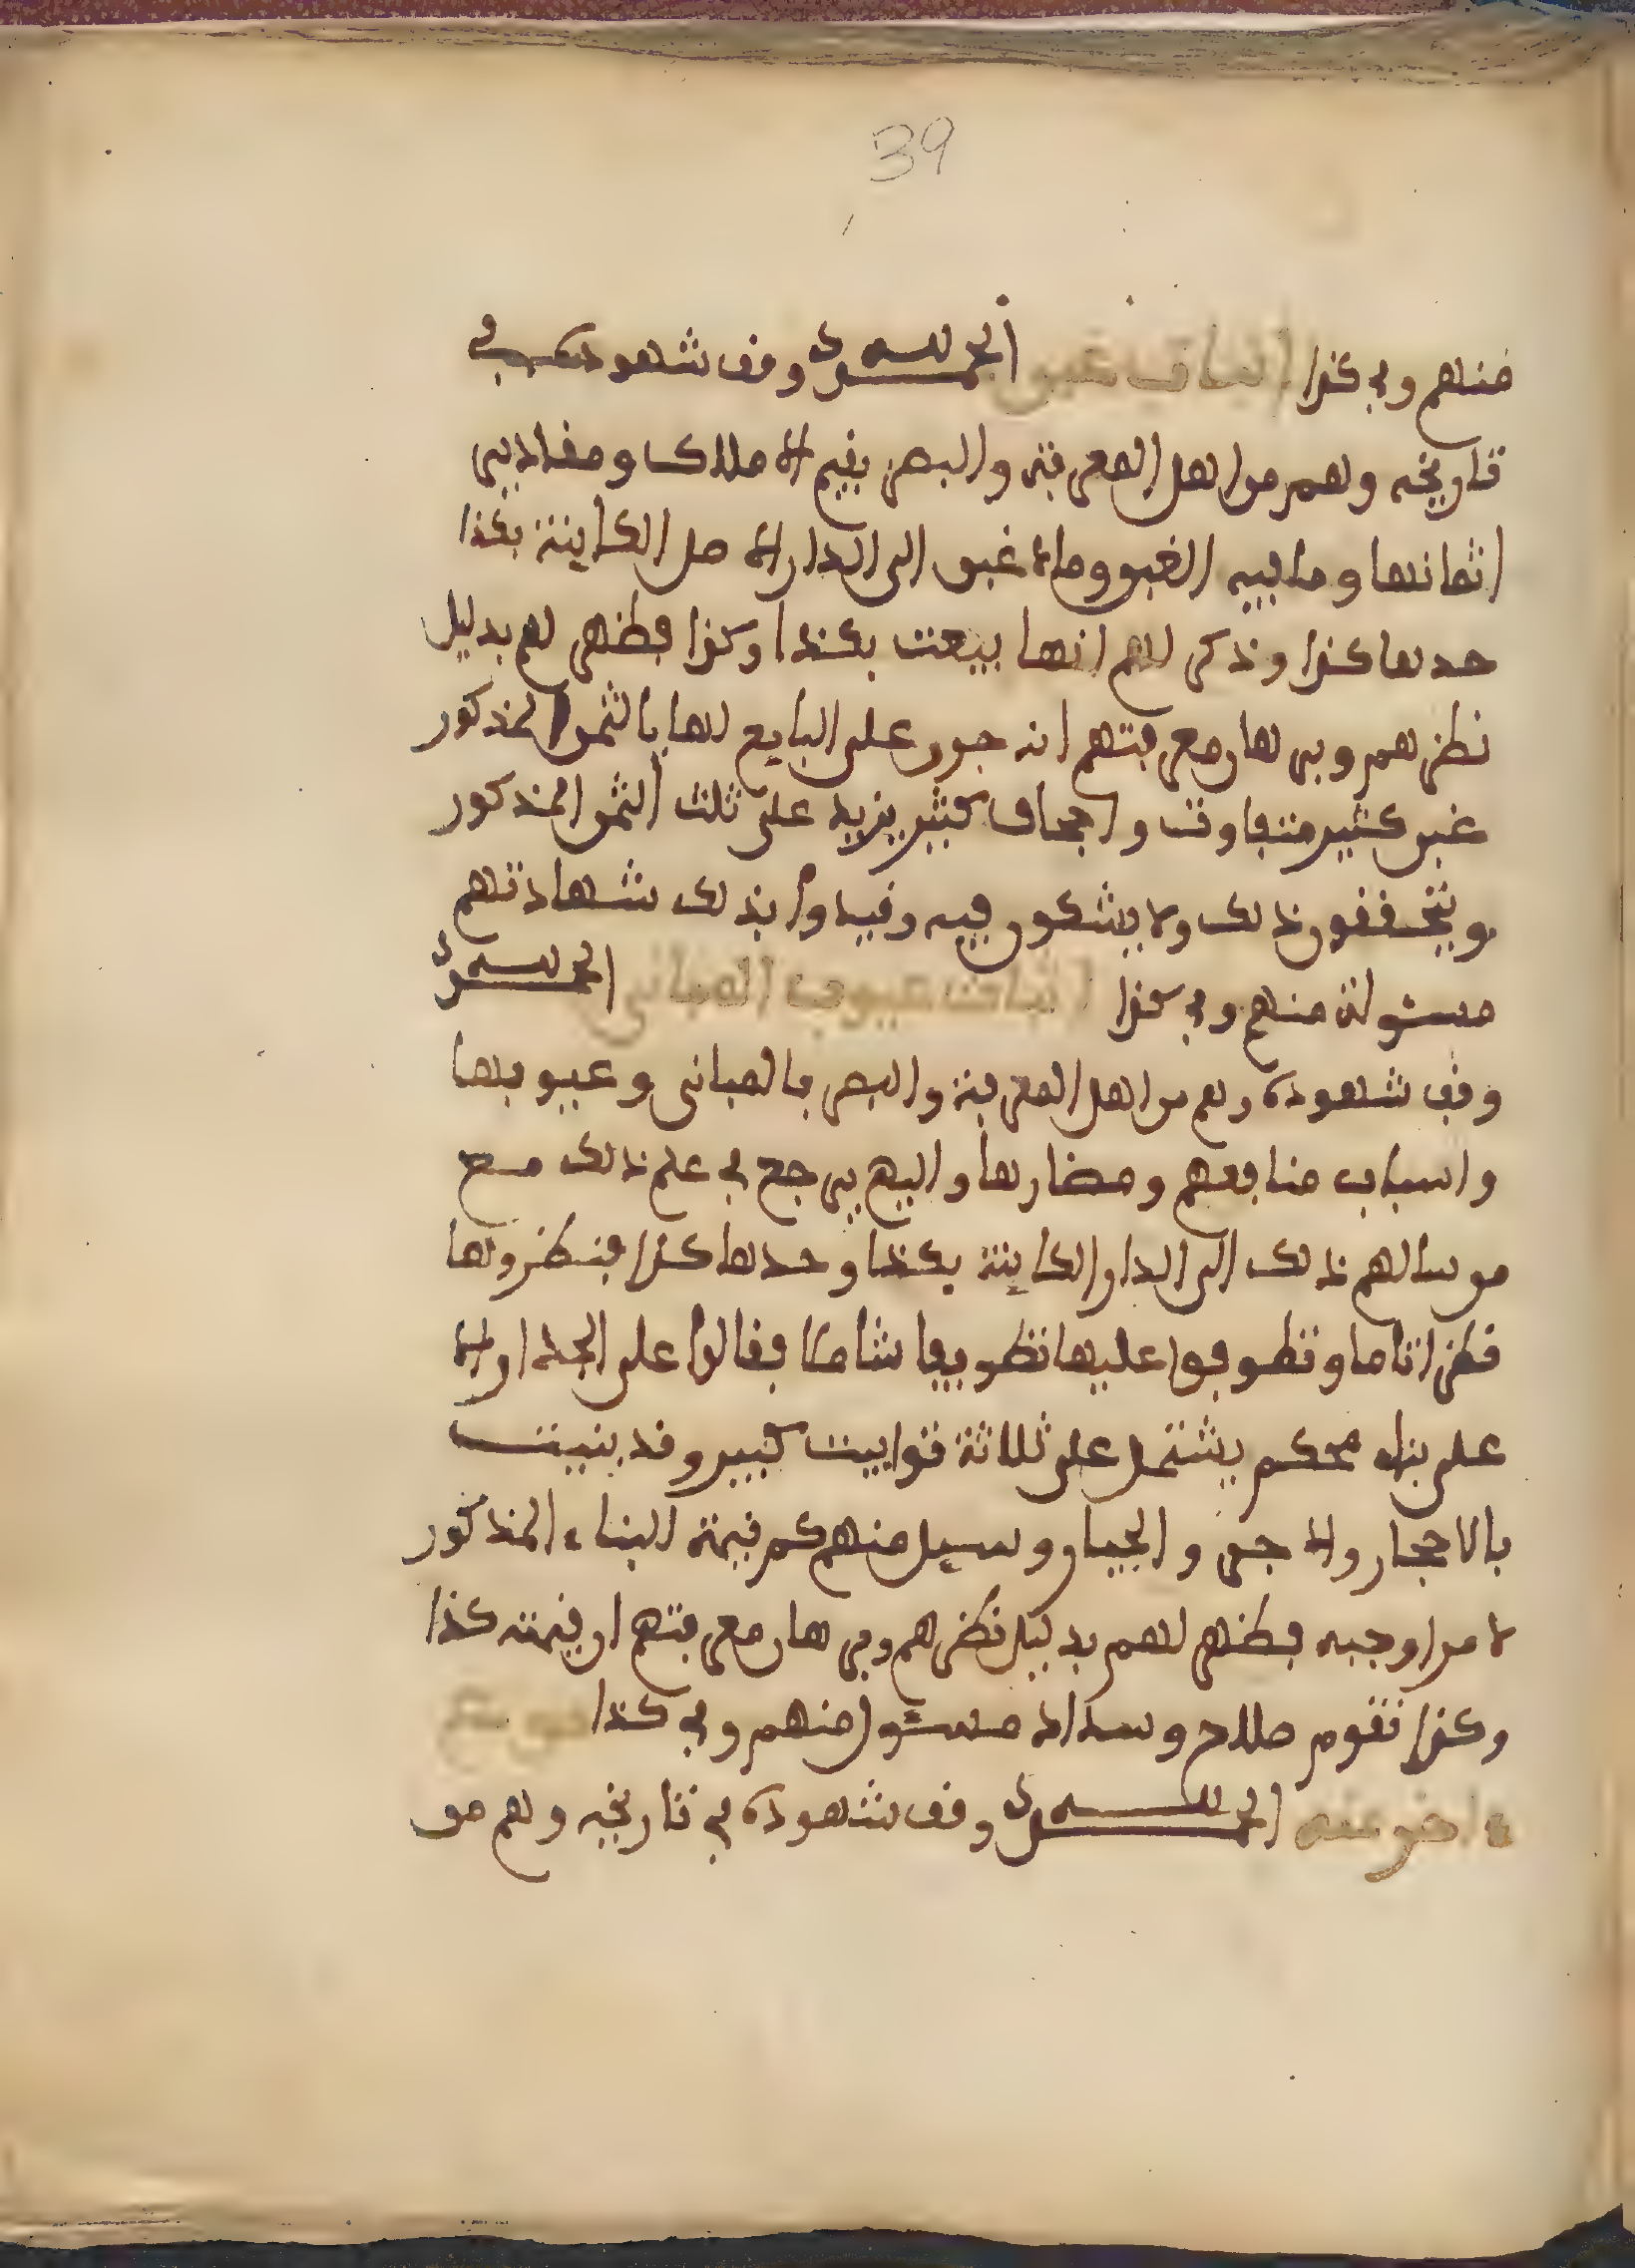 39
منهم وفي كذا اثبات غبن الحمد لله وقف شهوده في
تاريخه وهم من اهل المعرفة والبصر بقيم الاملاك ومقادير
اثمانها وما فيه الغبن وما لا غبن الى الدار الاصل الكاينة بكذا
حدها كذا وذكر لهم انها بيعت بكذا وكذا فظهر لهم بدليل
نظرهم وبرهان معرفتهم انه جور على البايع لها بالثمن المذكور
غبن كثير متفاوت واجحاف كثير يزيد على ثلث الثمن المذكور
ويتحققون ذلك ولا يشكون فيه وقيدوا بذلك شهادتهم
مسئولة منهم وفي كذا اثبات عيوب المباني الحمد لله
وقف شهوده وهم من اهل المعرفة والبصر بالمباني وعيوبها
واسباب منافعهم ومضارها واليهم يرجع في علم ذلك مع
من سالهم ذلك الى الدار الكاينة بكذا وحدها كذا فنظروها
نظرا تاما وتطوفوا عليها تطويفا شاملا فقالوا على الجدار
على بناء محكم يشتمل على ثلاثة توابيت كبير وقد بنيت
بالاحجار والاجر والجيار وسيل منهم كم قيمة البناء المذكور
لامر اوجبه فظهر لهم بدليل نظرهم وبرهان معرفتهم ان قيمته كذا
وكذا تقوم صلاح وسداد مسئول منهم وفي كذا
الحمد لله وقف شهوده في تاريخه وهم من